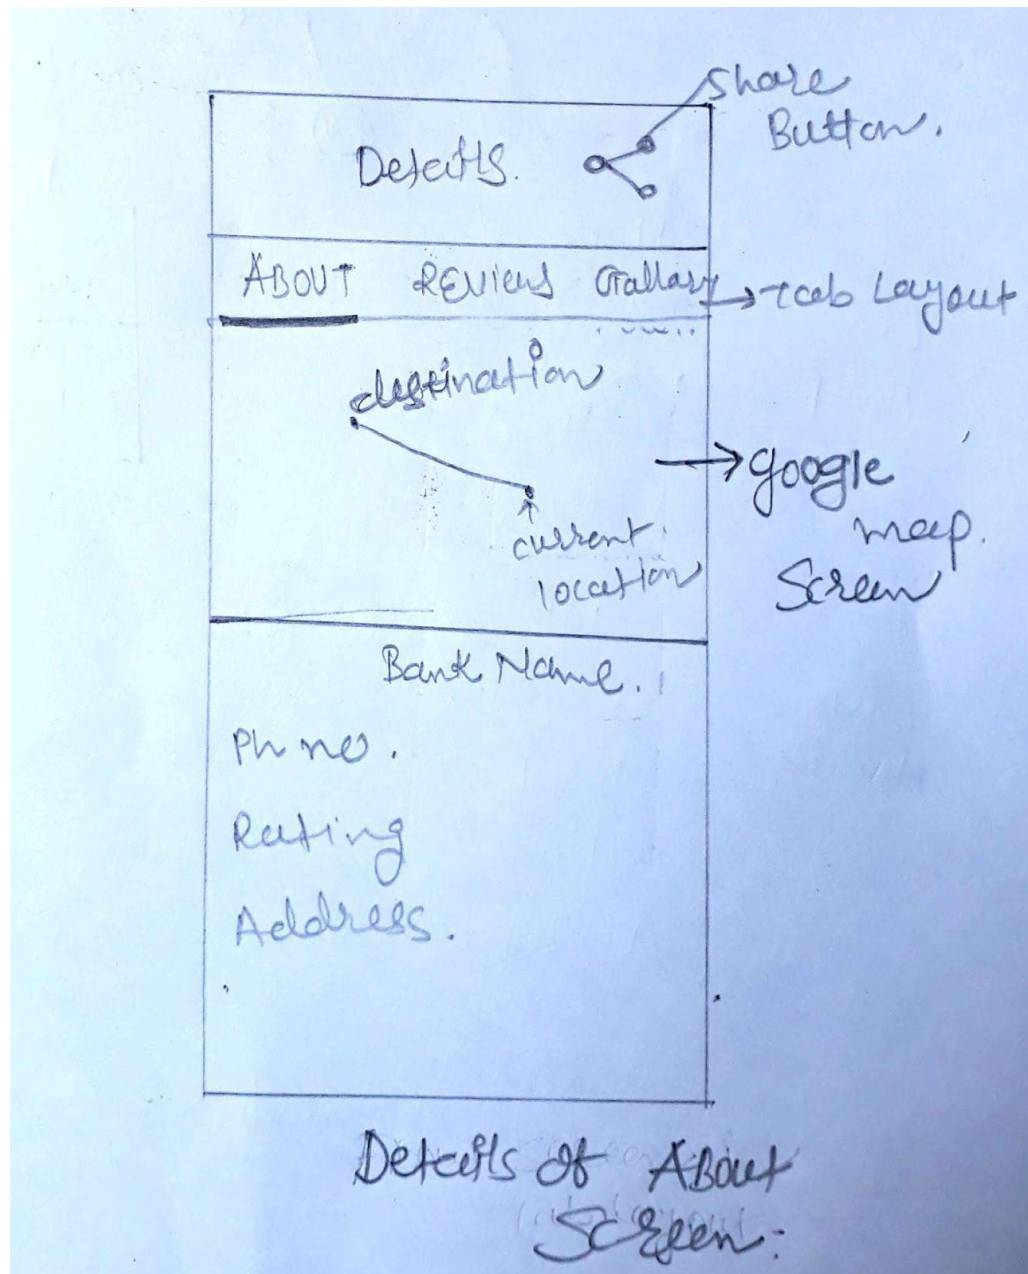 Share
Button.
Details.
ABOUT Reviews Gallary → Tab Layout
destination
→ google
map.
Screen
current
location
Bank Name.
Ph no.
Rating
Address.
Details of About
Screen: